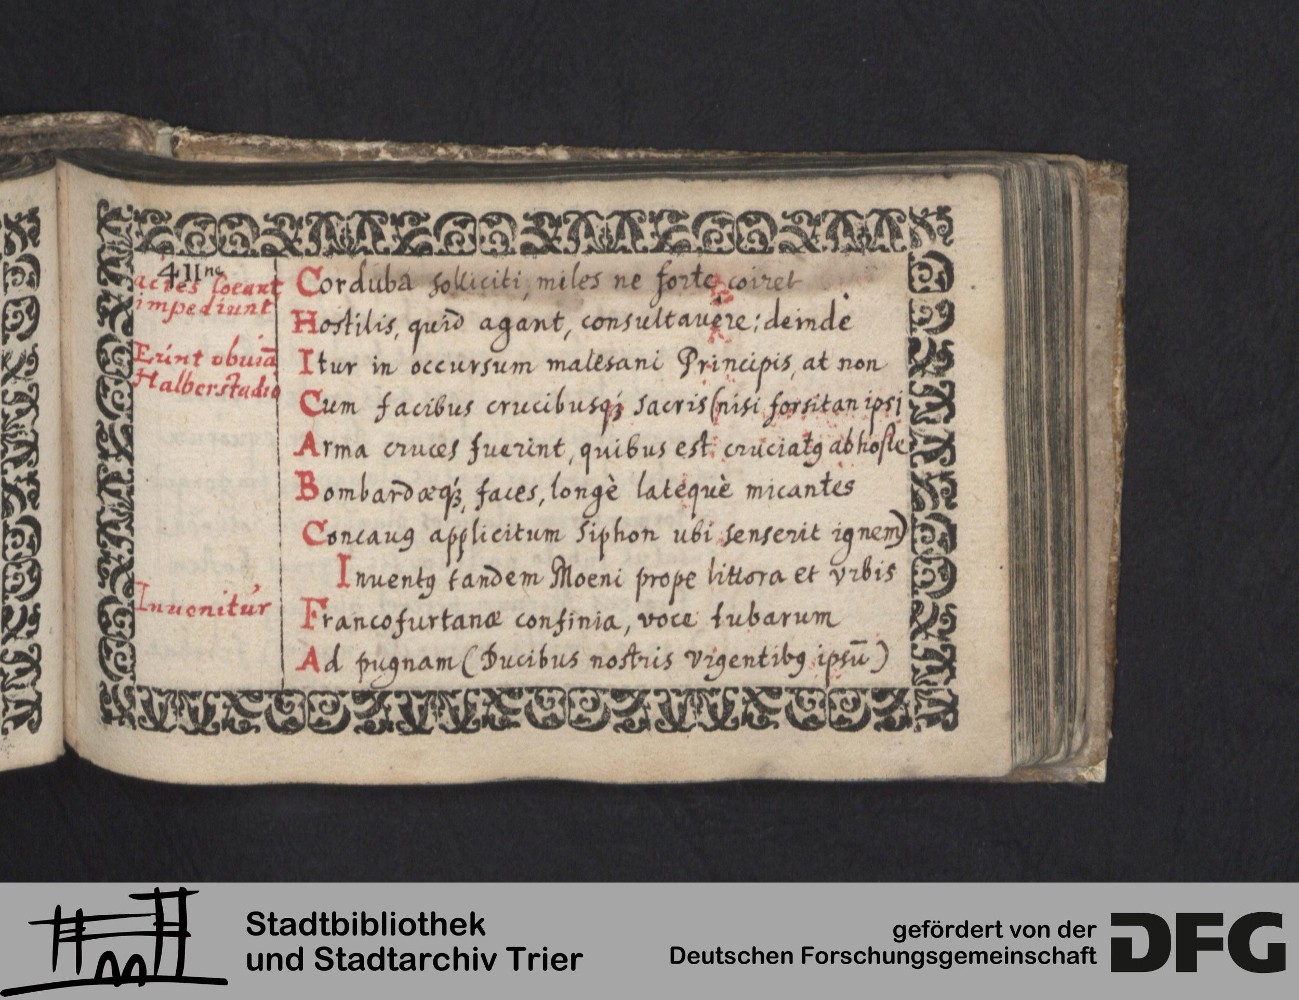 411ne
acies coeant
impediunt
Eunt obuiā
Halberstadio
Inuenitur
Corduba solliciti, miles ne forte coiret
Hostilis, quid agant, consultauere; deindè
Itur in occursum malesani Principis, at non
Cum facibus crucibusq; sacris (nisi forsitan ipsi
Arma cruces fuerint, quibus est cruciatꝰ ab hoste
Bombardæq;, faces, longè latequè micantes
Concauꝰ applicitum siphon ubi senserit ignem)
Inuentꝰ tandem Moeni prope littora et vrbis
Francofurtanæ confinia, voce tubarum
Ad pugnam (Ducibus nostris vrgentibꝰ ipsū)
Stadtbibliothek
und Stadtarchiv Trier
gefördert von der
Deutschen Forschungsgemeinschaft
DFG